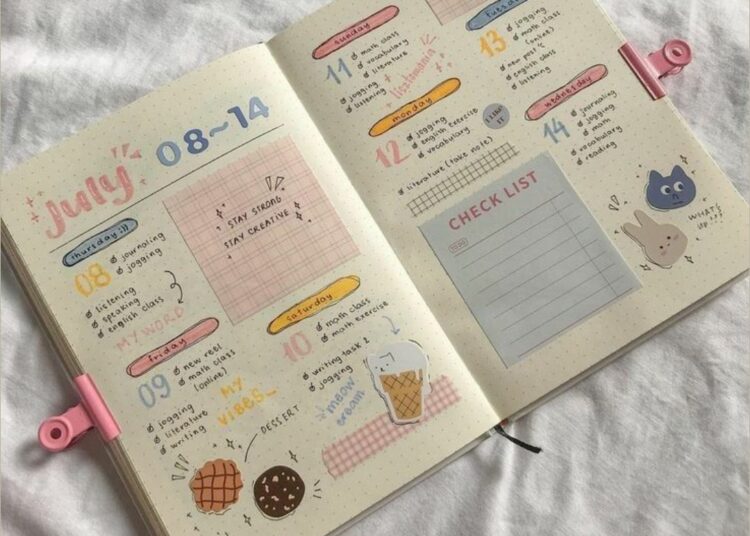 july
08~14
thursday :))
08
journaling
jogging
listening
speaking
english class
MY WORD
STAY STRONG
STAY CREATIVE
friday
09
new reel
math class
(online)
jogging
literature
writing
MY
VIBES_
DESSERT
saturday
10
math class
math exercise
writing task 2
jogging
meow
cream
sunday
11
math class
vocabulary
literature
jogging
listening
monday
12
jogging
english exercise
vocabulary
literature (take note)
tuesday
13
jogging
math class
(online)
english class
listening
wednesday
14
journaling
jogging
math
vocabulary
reading
CHECK LIST
WHAT'S
UP